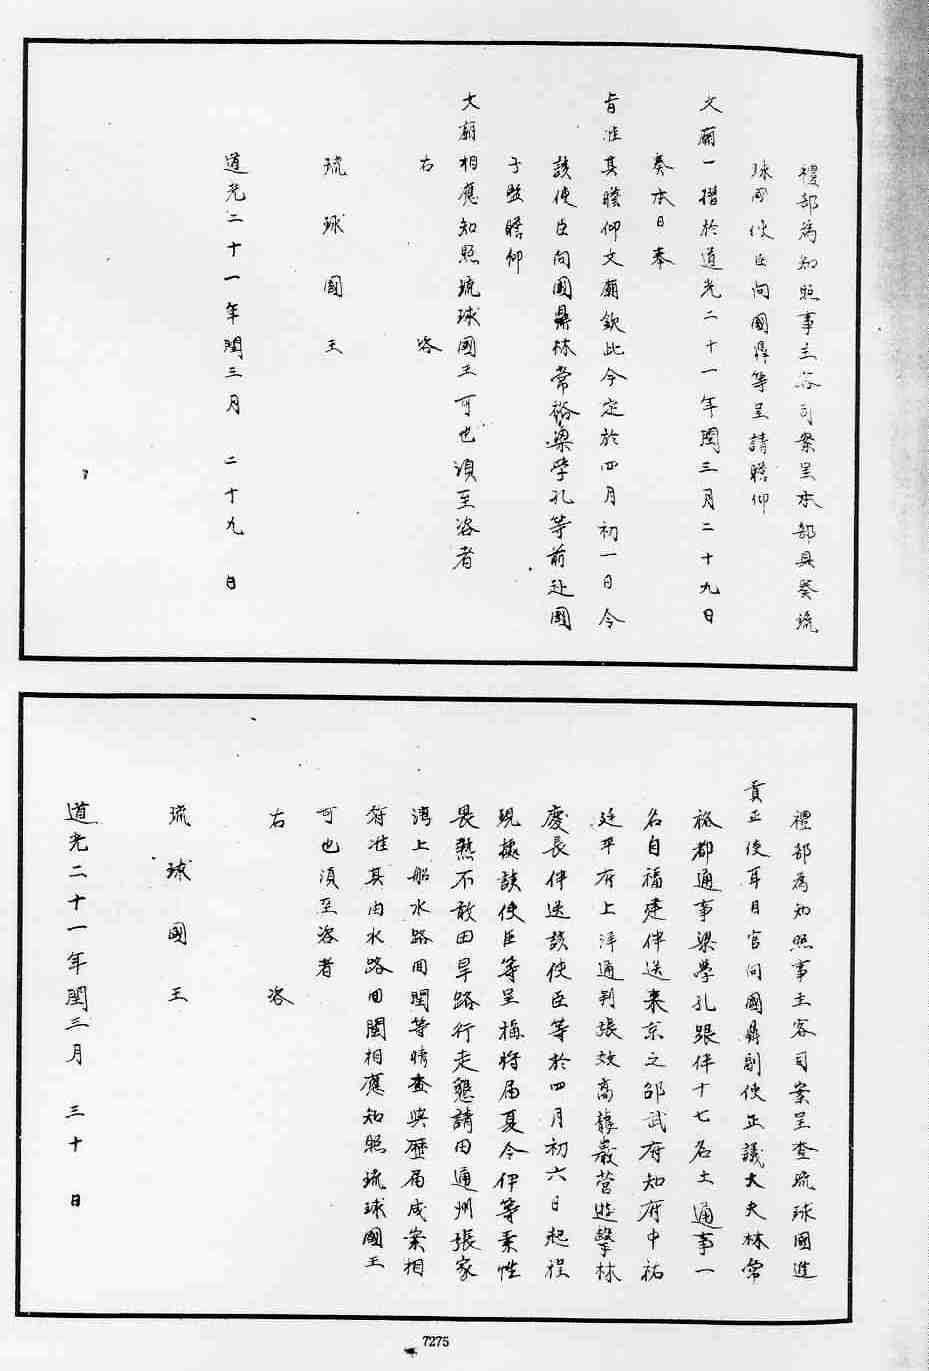 禮部為知照事主客司案呈本部具奏琉
球國使臣向國鼎等呈請瞻仰
文廟一摺於道光二十一年閏三月二十九日
奏本日奉
旨准其瞻仰文廟欽此今定於四月初一日令
該使臣向國鼎林常裕梁學孔等前赴國
子監瞻仰
文廟相應知照琉球國王可也須至咨者
右咨
琉球國王
道光二十一年閏三月二十九日
禮部為知照事主客司案呈查琉球國進
貢正使耳目官向國鼎副使正議大夫林常
裕都通事梁學孔跟伴十七名土通事一
名自福建伴送來京之邵武府知府中祐
延平府上洋通判張效高龍巖營遊擊林
慶長伴送該使臣等於四月初六日起程
現據該使臣等呈稱將屆夏令伊等秉性
畏熱不敢由旱路行走懇請由通州張家
灣上船水路回閩等情查與歷屆成案相
符准其由水路回閩相應知照琉球國王
可也須至咨者
右咨
琉球國王
道光二十一年閏三月三十日
7275